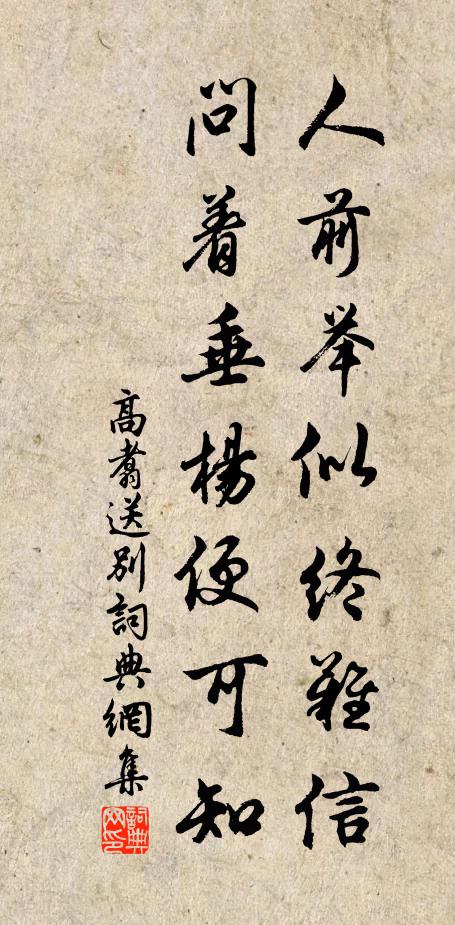 人前举似终难信
问着垂杨便可知
高翥送别词典網集
詞典網印